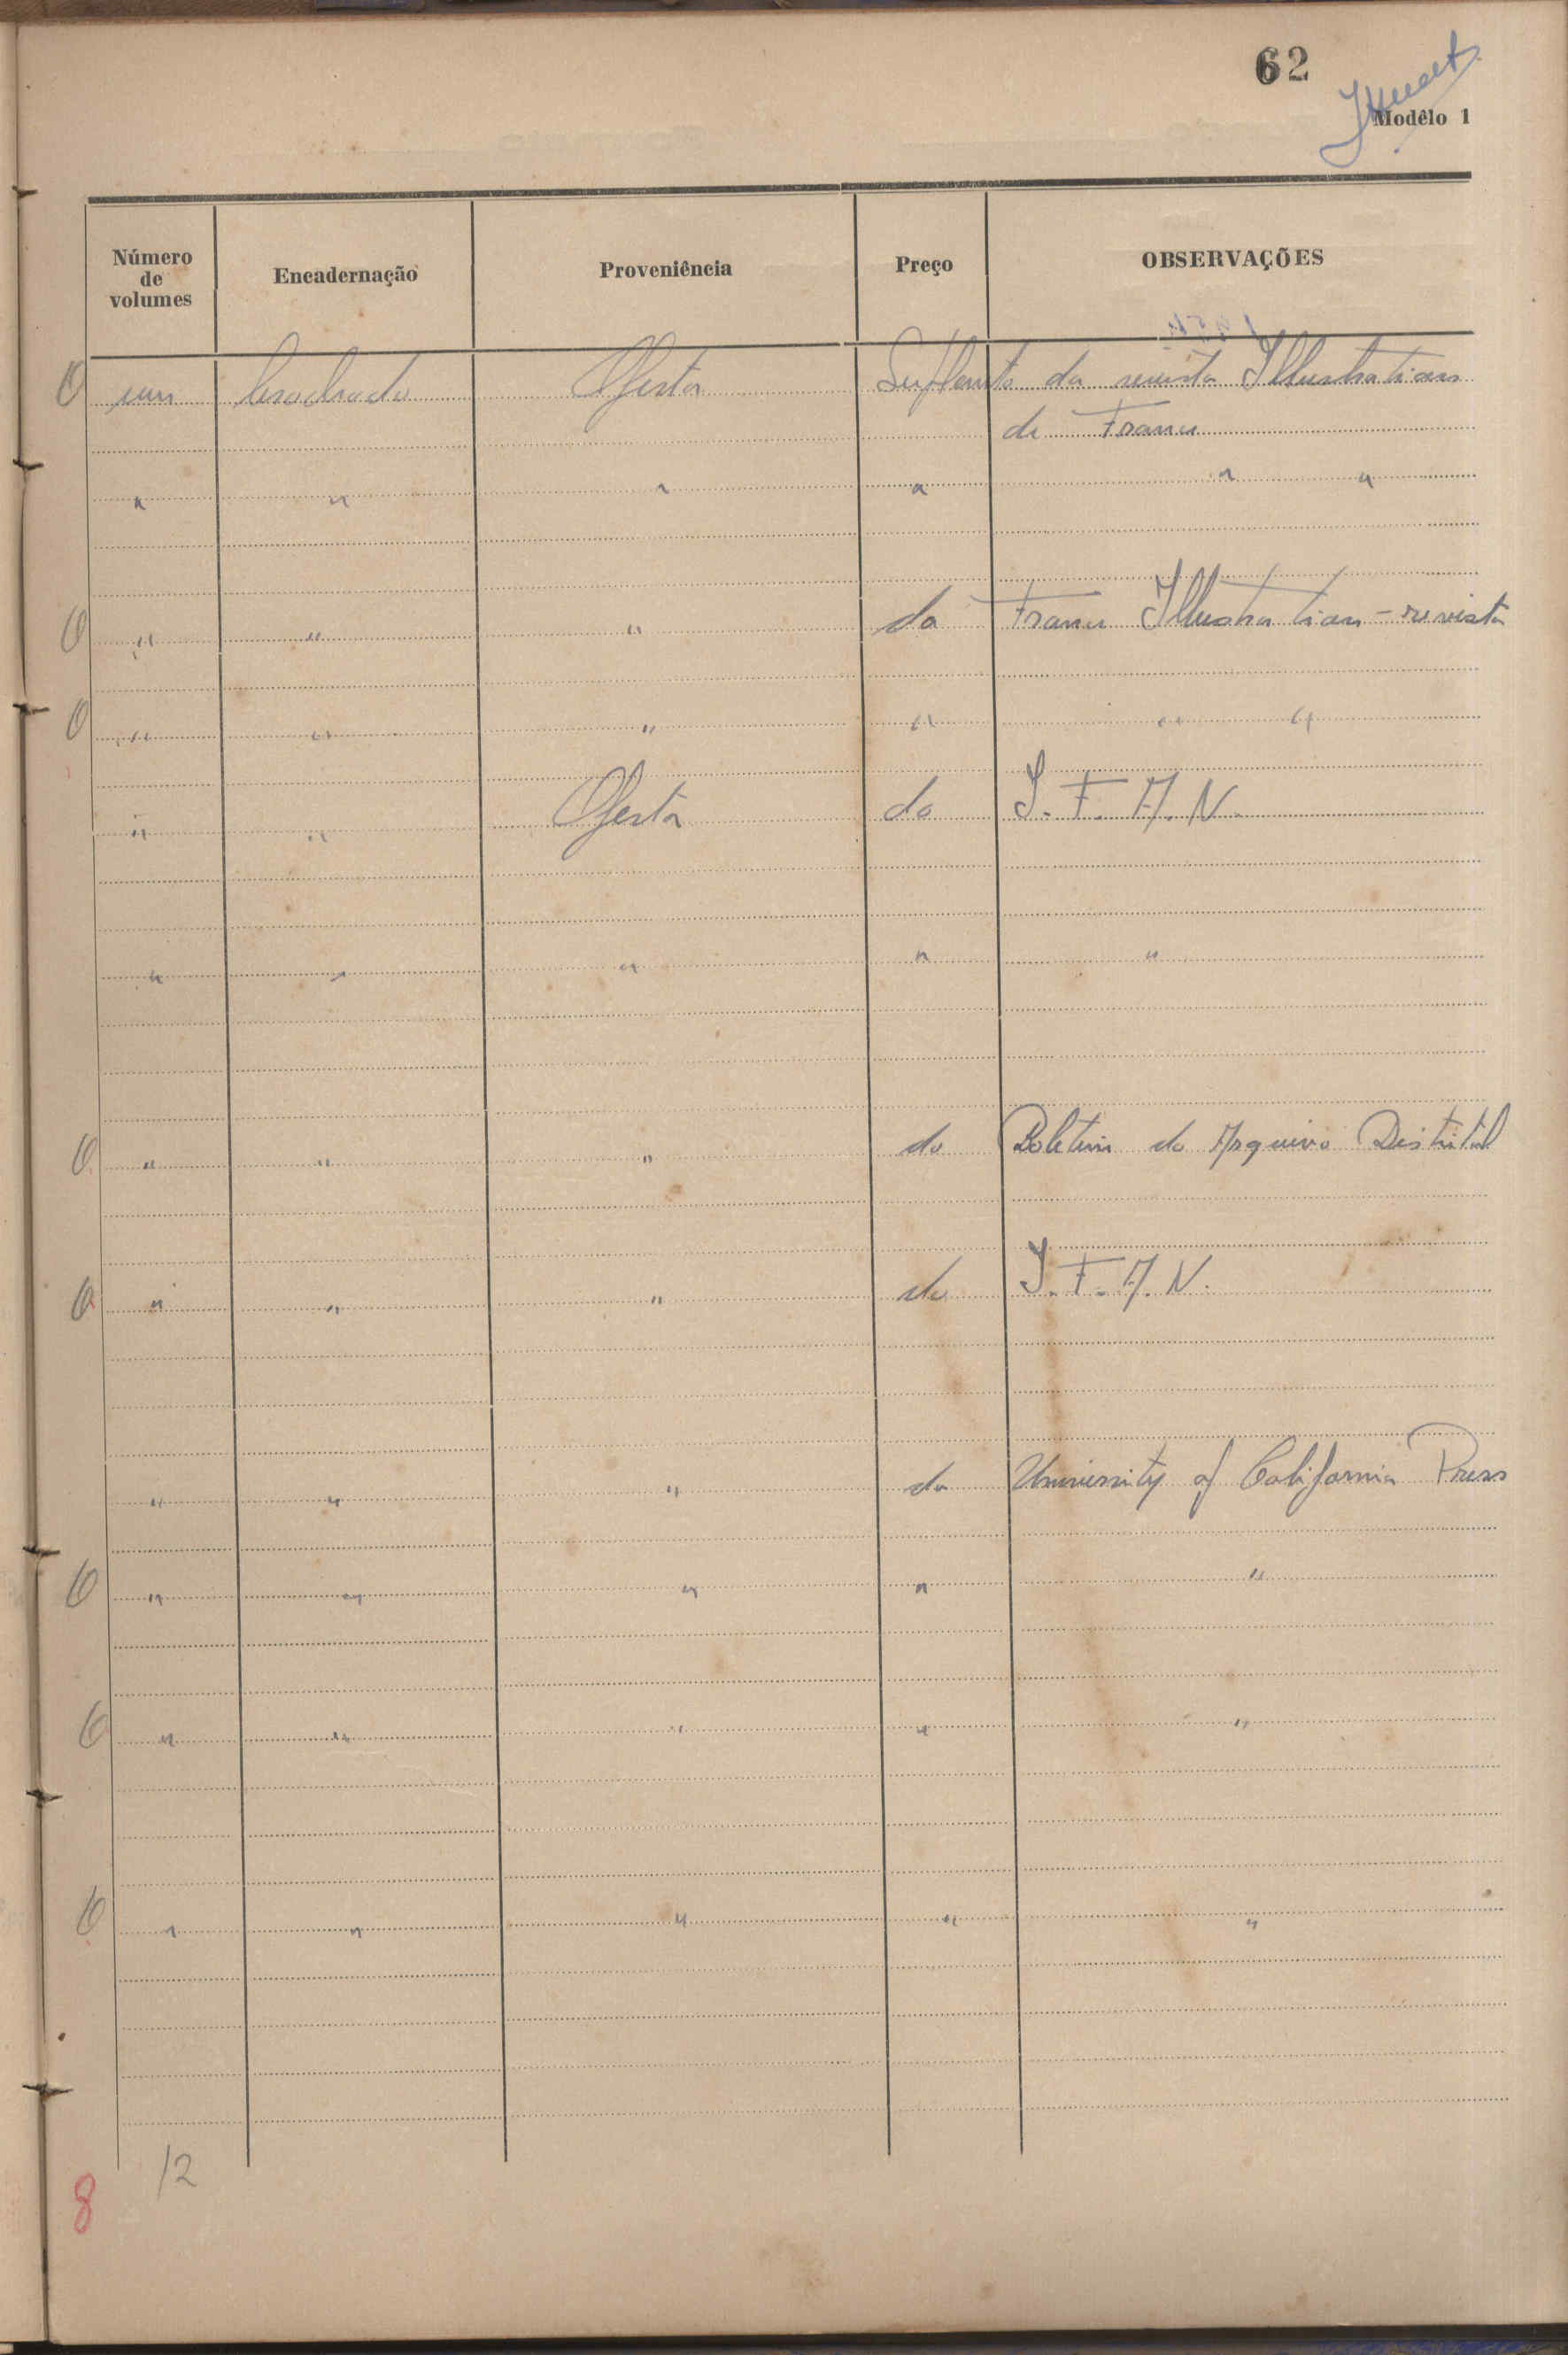 62
Modêlo 1
Número de volumes Encadernação Proveniência Preço OBSERVAÇÕES
O um Oferta Suplemento da revista Illustration
de France
" " " " " "
O " " " da France Illustration - revista
O " " " " " "
" " Oferta do I. F. A. N.
" " " " "
O " " " do Boletim do Arquivo Distrital
O " " " do I. F. A. N.
" " " da University of California Press
O " " " " "
O " " " " "
O " " " " "
12
8